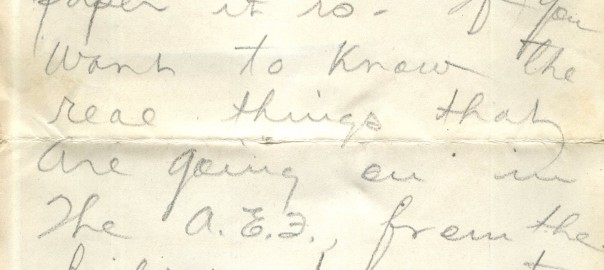 paper it is - If you
want to know the
real things that
are going on in
the A.E.F., from the